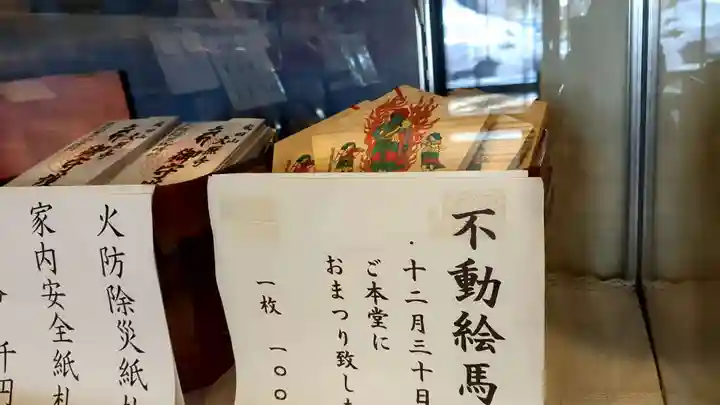 不動絵馬
・十二月三十日
ご本堂に
おまつり致しま
一枚 一〇〇
火防除災紙札
家内安全紙札
千円